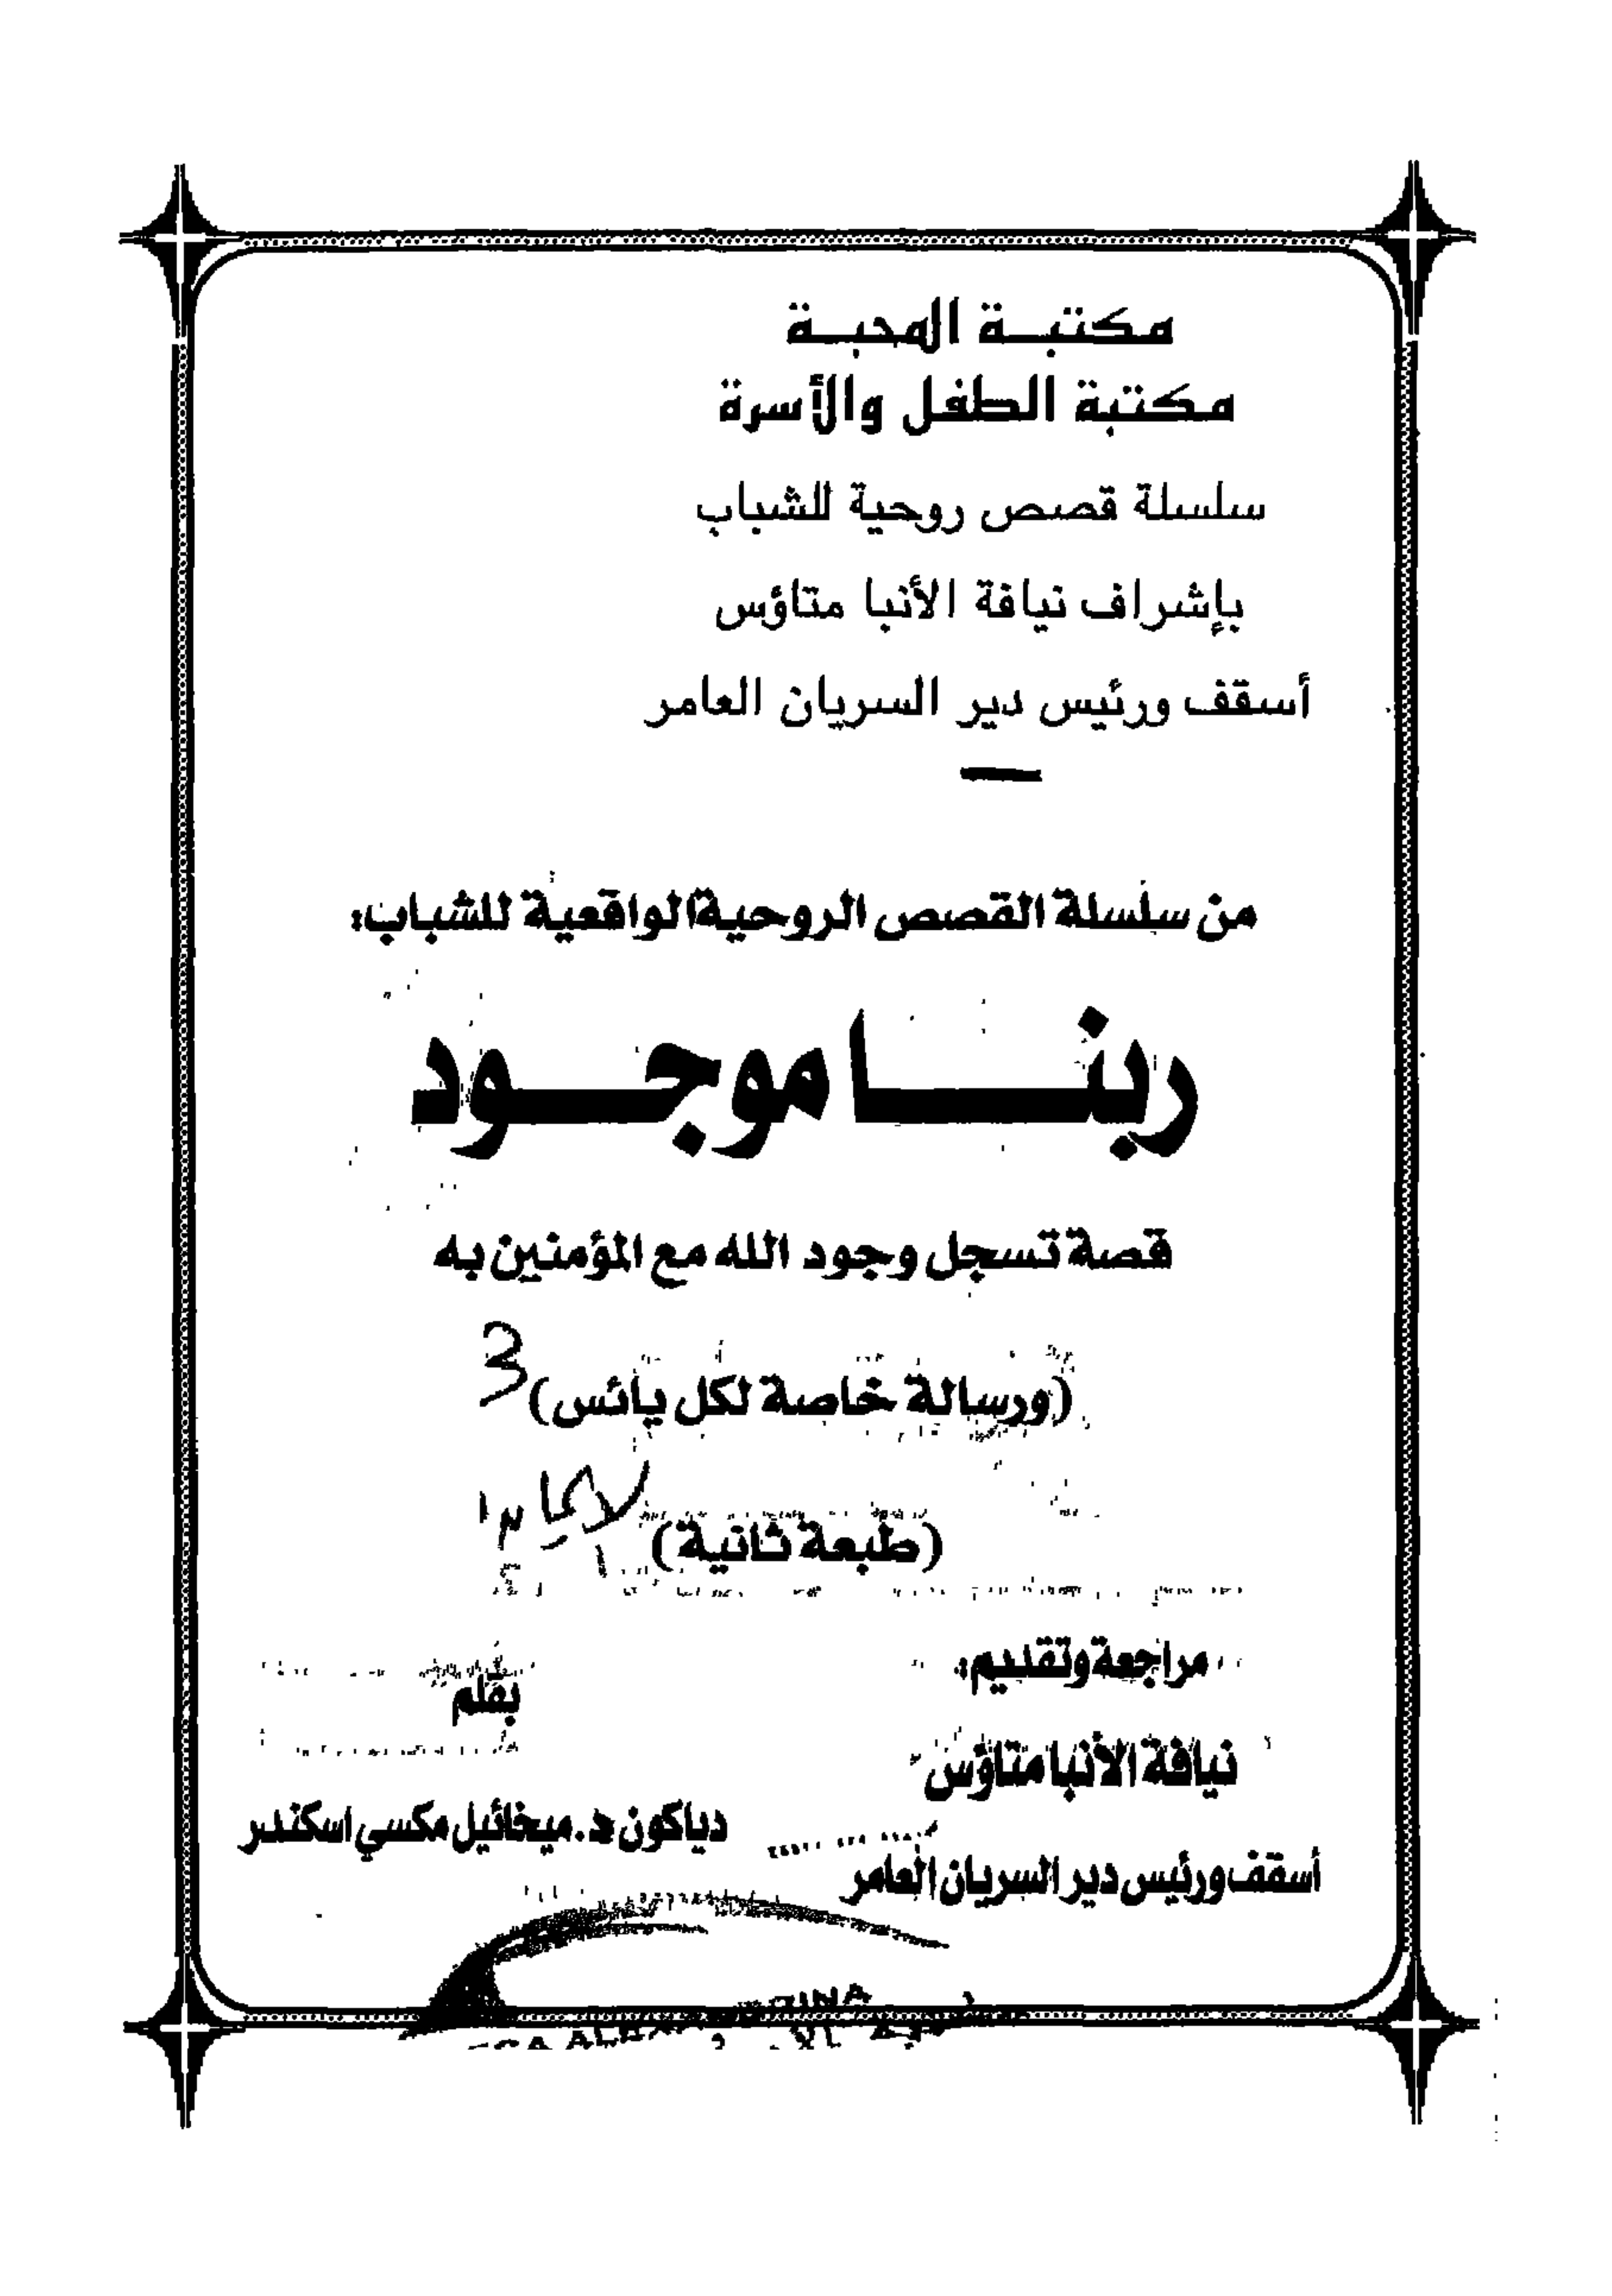 مكتبة المحبة
مكتبة الطفل والأسرة
سلسلة قصص روحية للشباب
بإشراف نيافة الأنبا متاؤس
أسقف ورئيس دير السريان العامر
من سلسلة القصص الروحية الواقعية للشباب:
ربنا موجود
قصة تسجل وجود الله مع المؤمنين به
(ورسالة خاصة لكل يائس)
(طبعة ثانية)
مراجعة وتقديم:
نيافة الأنبا متاؤس
أسقف ورئيس دير السريان العامر
بقلم
دياكون د. ميخائيل مكسي اسكندر